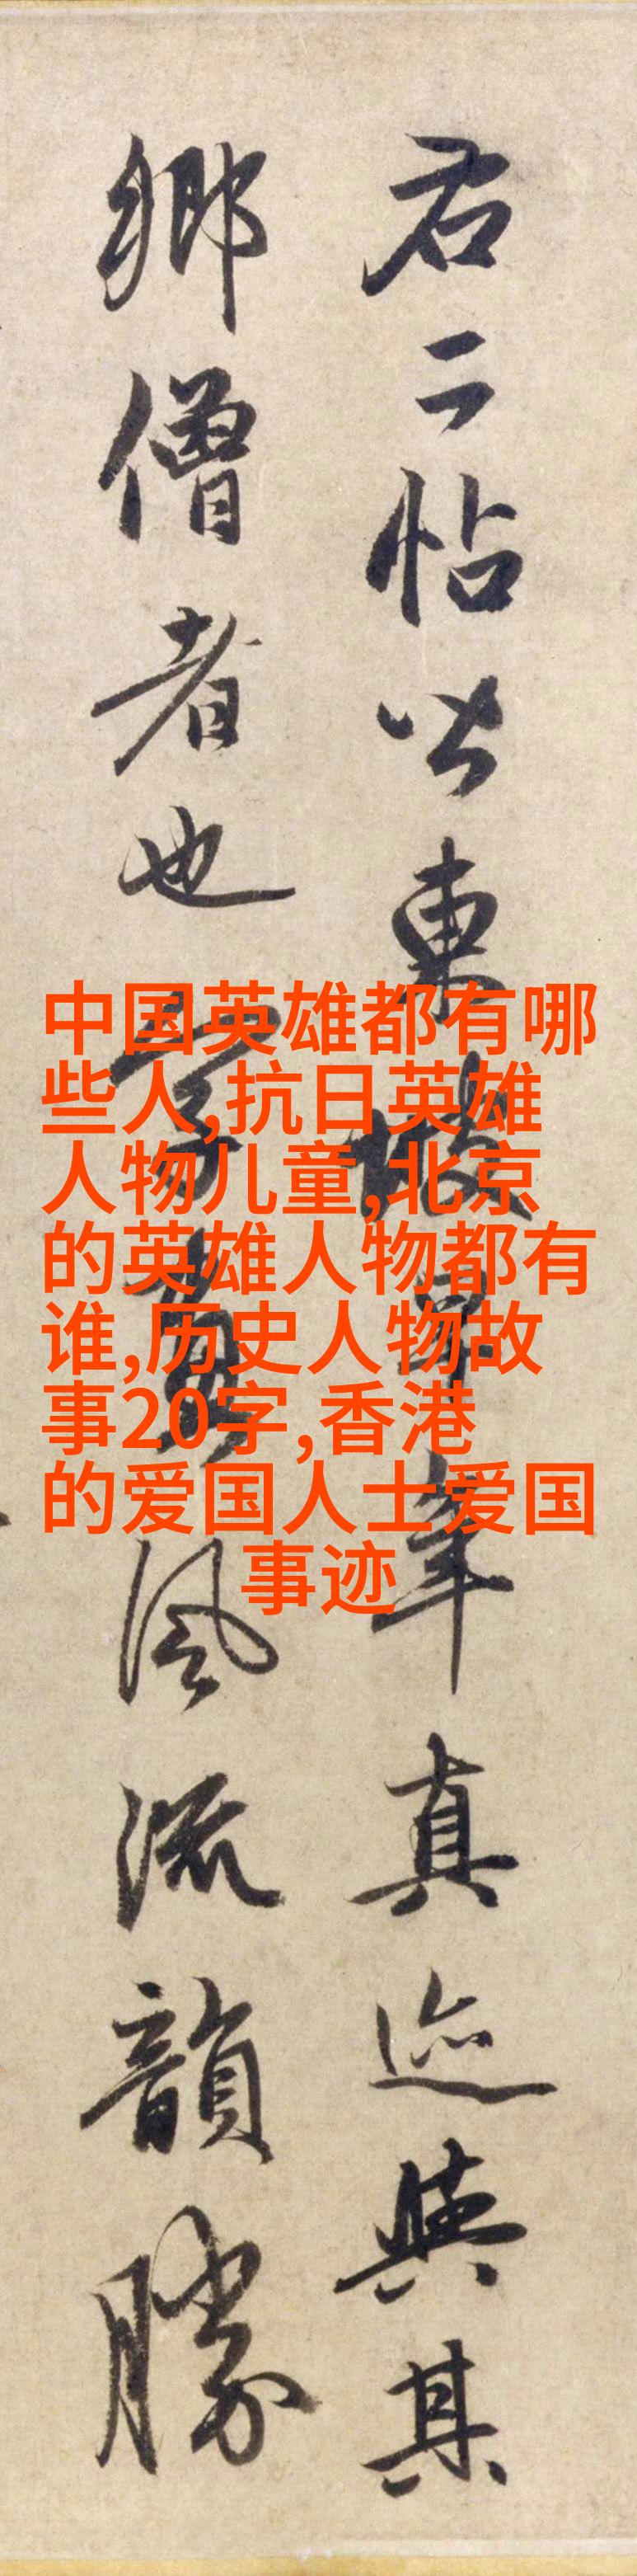 右二帖皆東坡早年真迹與其
鄉僧者也字畫風流韻勝
中国英雄都有哪
些人,抗日英雄
人物儿童,北京
的英雄人物都有
谁,历史人物故
事20字,香港
的爱国人士爱国
事迹